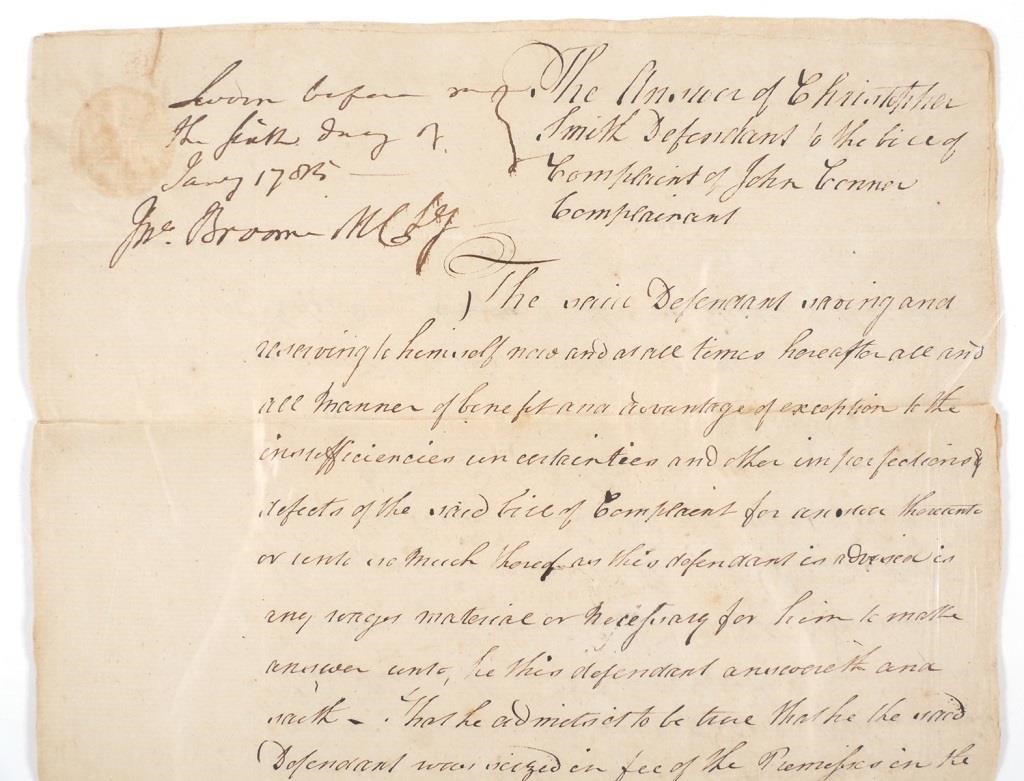 Sworn before me
the sixth day of
Jany 1785
Jno. Broome M C
The Answer of Christopher
Smith Defendant to the bill of
Complaint of John Conner
Complainant
The said Defendant saving and
reserving to himself now and at all times hereafter all and
all Manner of benefit and advantage of exception to the
insufficiencies uncertainties and other imperfections &
defects of the said bill of Complaint for answer thereunto
or unto so much thereof as this defendant is advised is
any ways material or Necessary for him to make
answer unto, he this defendant answereth and
saith - That he admits it to be true that he the said
Defendant was seized in fee of the Premisses in the